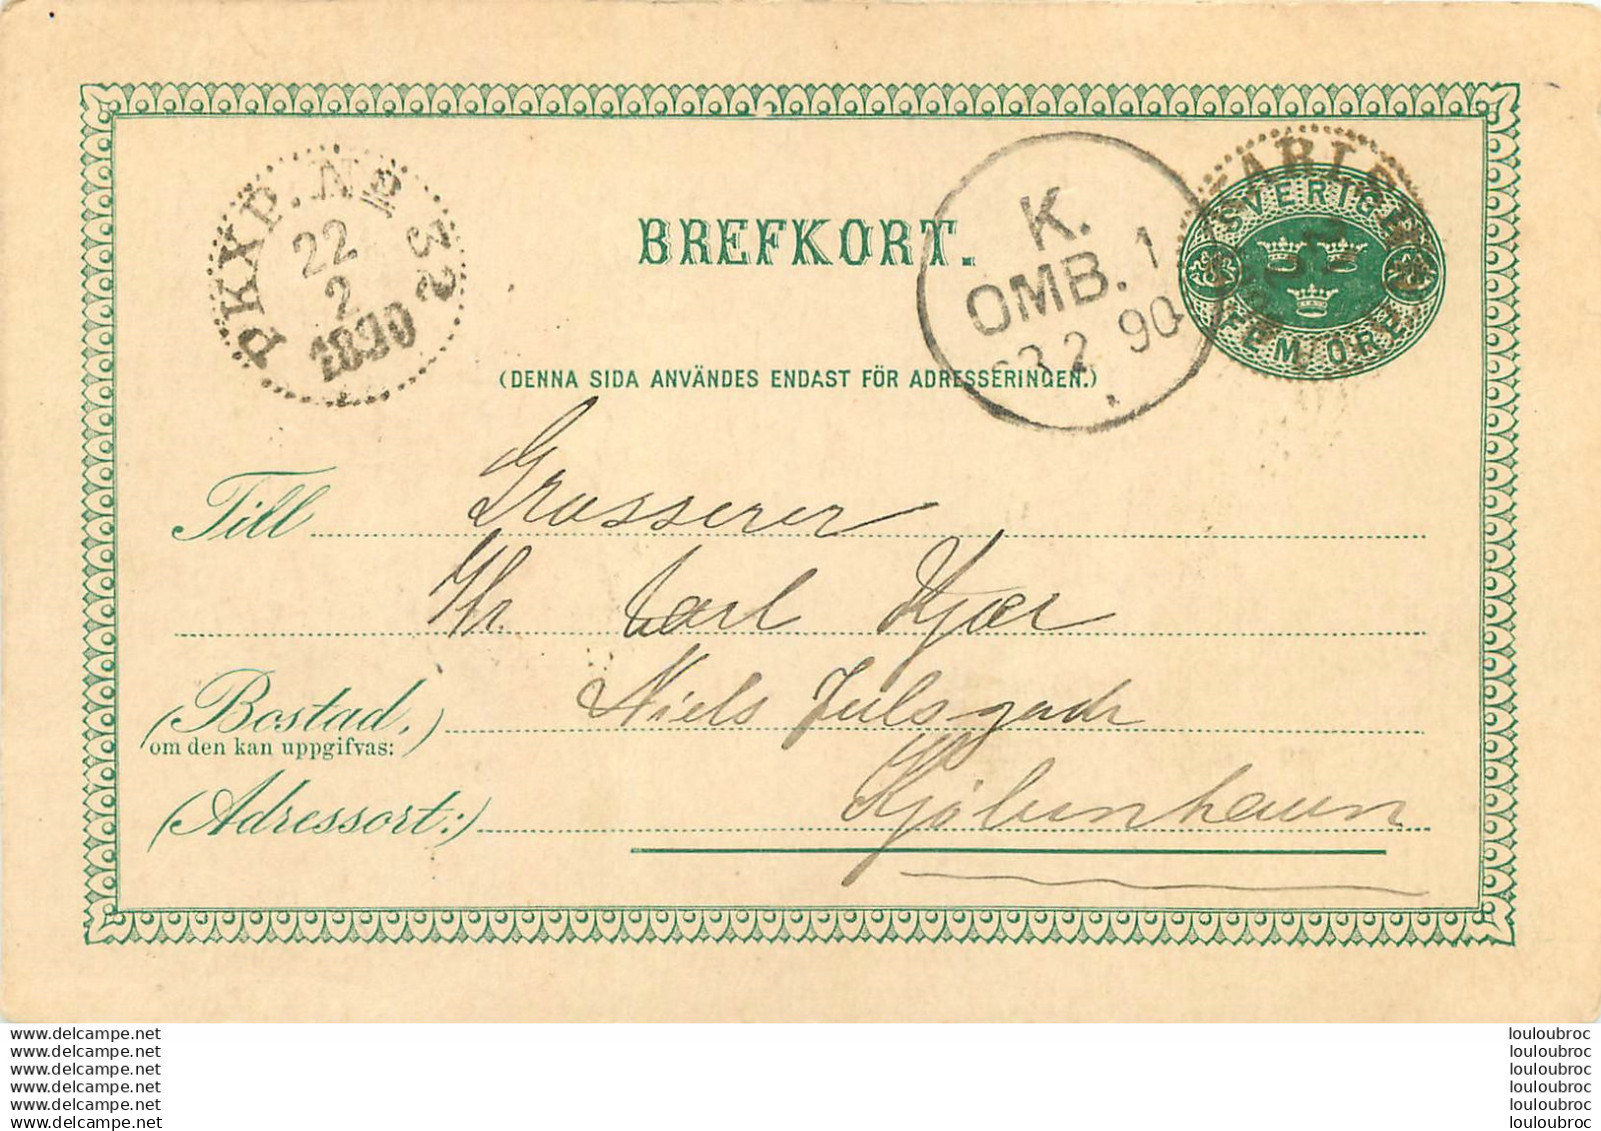 PKXP. Nº 2
22
2
1890
K.
OMB. 1
3 2 90
SVERIGE
FEM ÖRE
BREFKORT.
(DENNA SIDA ANVÄNDES ENDAST FÖR ADRESSERINGEN.)
Till Grosserer
Hr. Carl Kjær
(Bostad,) Niels Juelsgade
om den kan uppgifvas:
(Adressort:) Kjöbenhavn
www.delcampe.net
www.delcampe.net
www.delcampe.net
www.delcampe.net
www.delcampe.net
www.delcampe.net
louloubroc
louloubroc
louloubroc
louloubroc
louloubroc
louloubroc